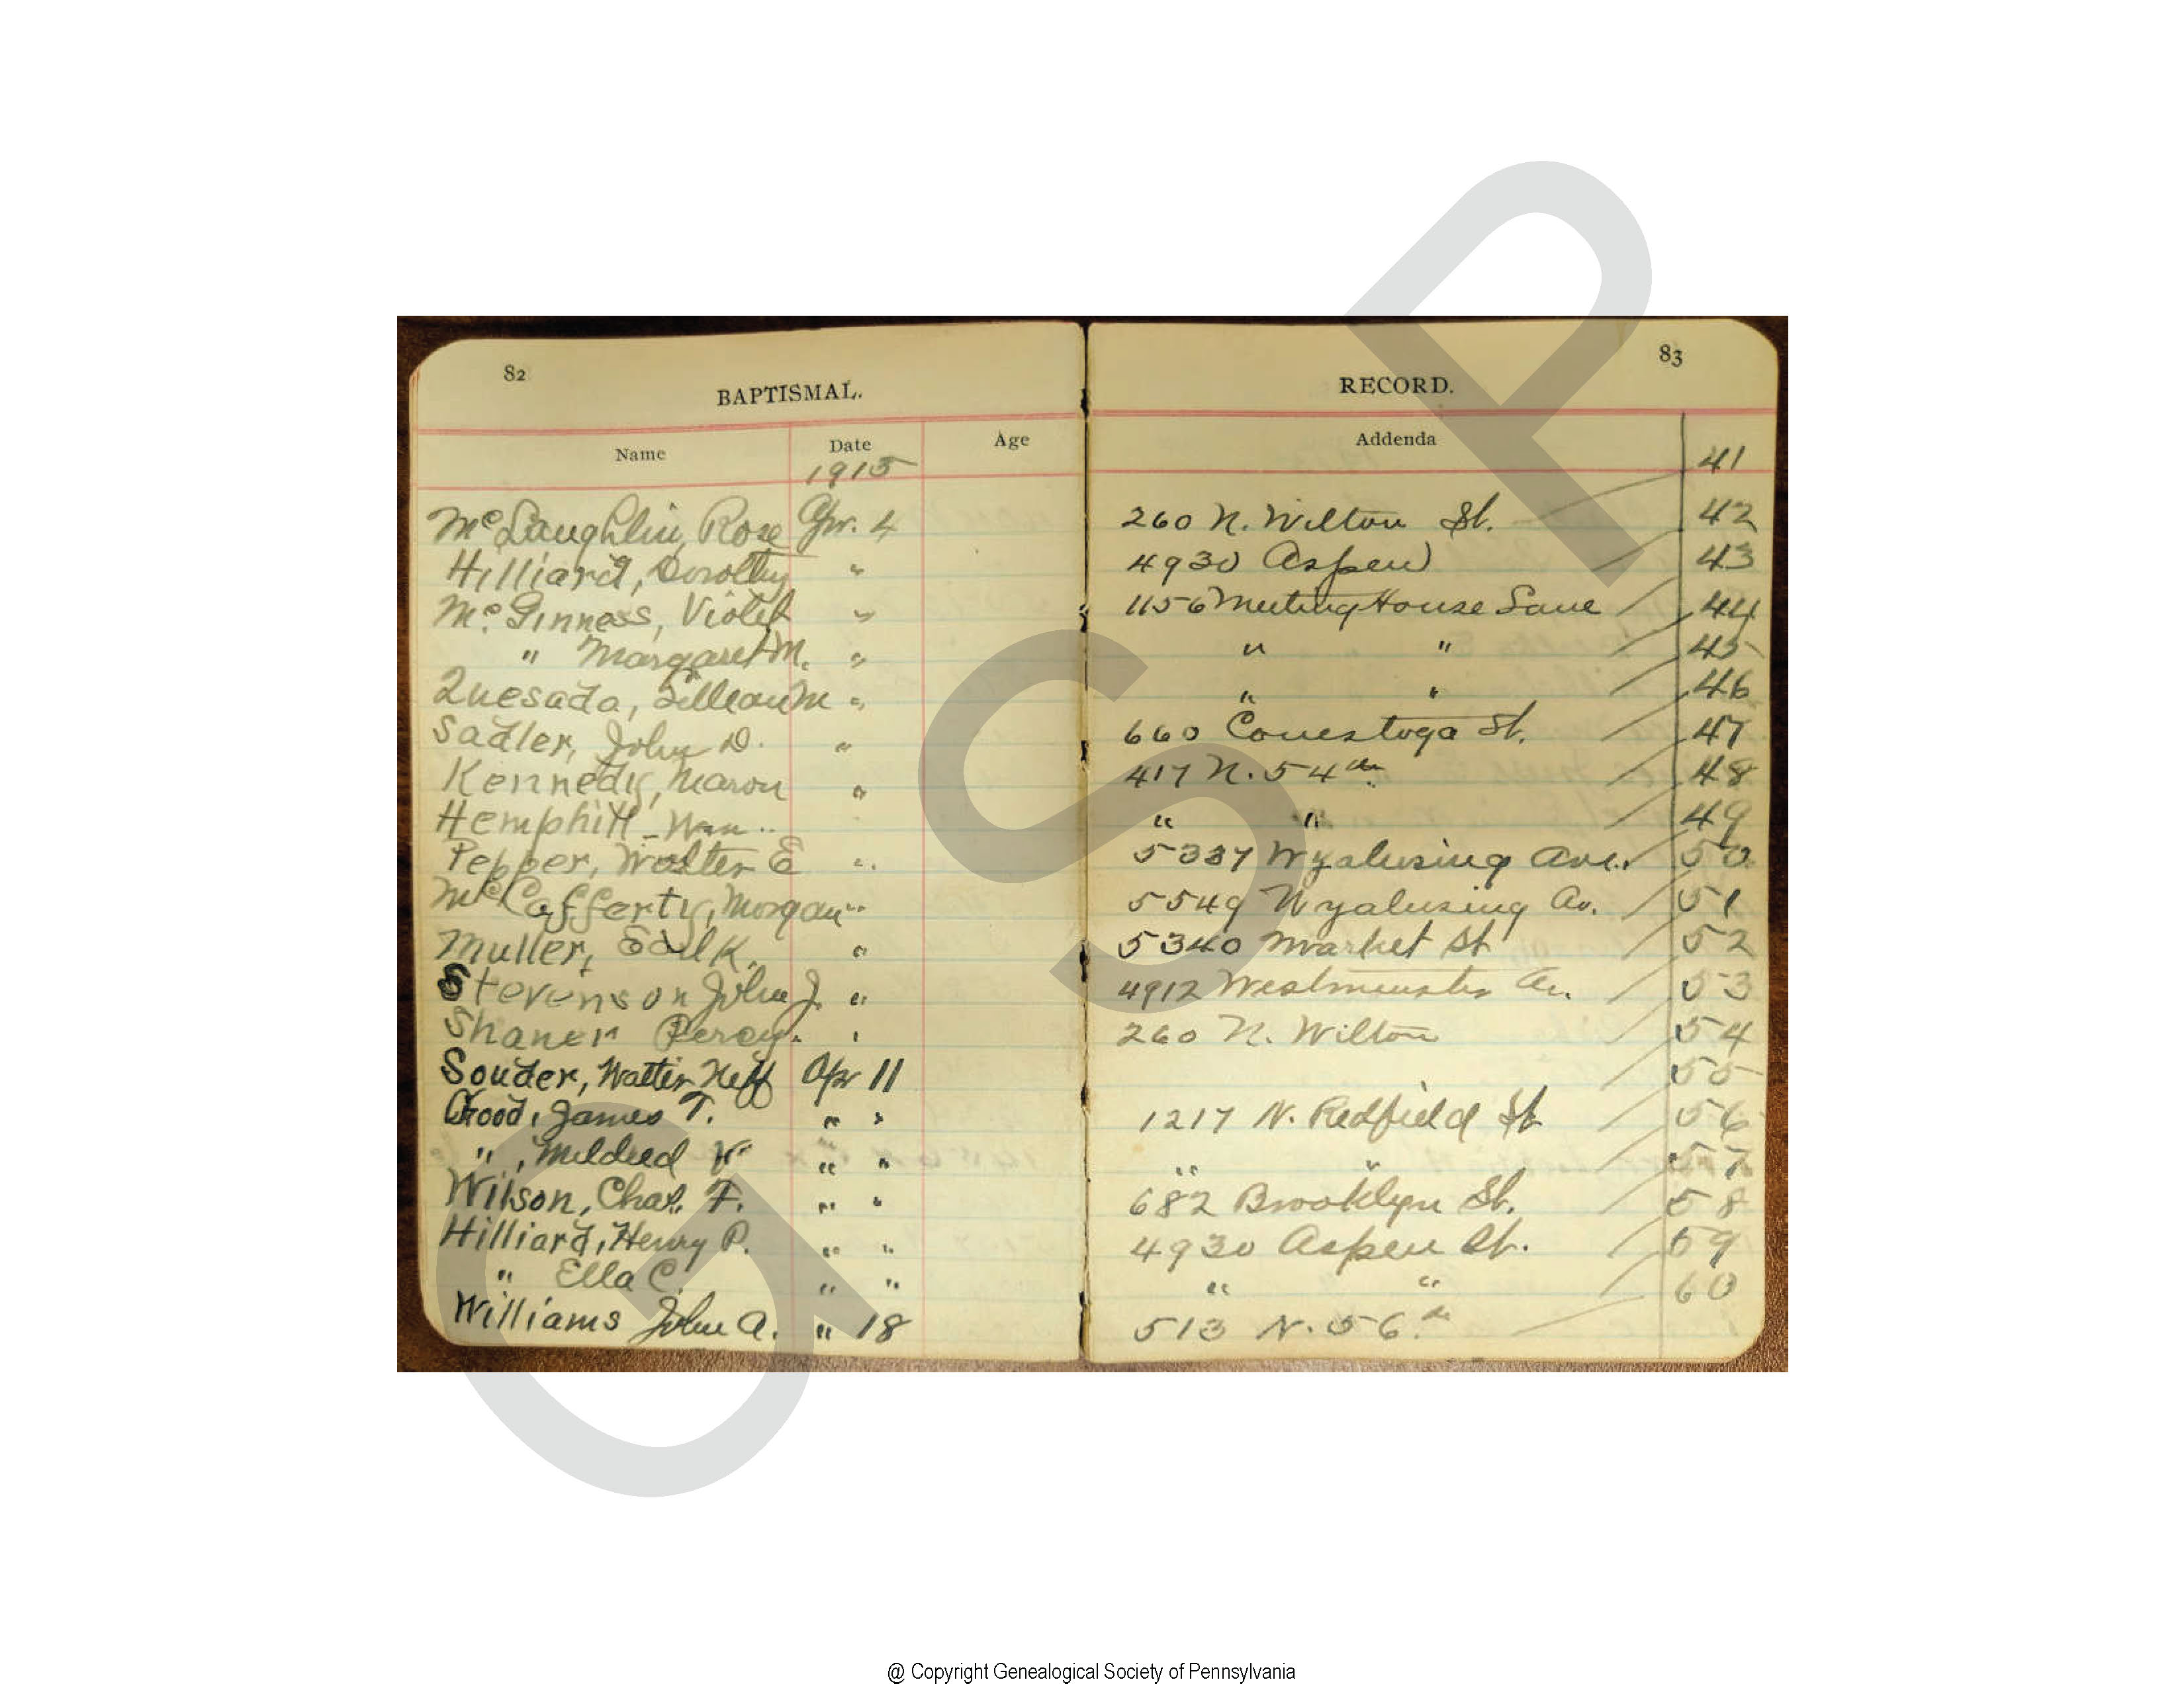 82
BAPTISMAL.
Name Date Age
1915
McLaughlin, Rose Apr. 4
Hilliard, Dorothy "
Mc.Ginness, Violet "
" Margaret M. "
Quesada, Lillian M "
Sadler, John D. "
Kennedy, "
Hemphill - Wm ..
Pepper, Walter E "
McCafferty, Morgan "
Muller, Earl K. "
Stevenson John J. "
Shaner Percy. "
Souder, Walter Neff Apr 11
Good, James T. " "
" , Mildred V " "
Wilson, Chas. F. " "
Hilliard, Henry P. " "
" Ella C. " "
Williams John A. " 18
83
RECORD.
Addenda
41
260 N. Wilton St. 42
4930 Aspen 43
1156 Meeting House Lane 44
" " 45
" " 46
660 Conestoga St. 47
417 N. 54th 48
" " 49
5337 Wyalusing Ave. 50
5549 Wyalusing Av. 51
5340 Market St 52
4912 Westminster Av. 53
260 N. Wilton 54
55
1217 N. Redfield St 56
" " 57
682 Brooklyn St. 58
4930 Aspen St. 59
" " 60
513 N. 56th
GSP
@ Copyright Genealogical Society of Pennsylvania